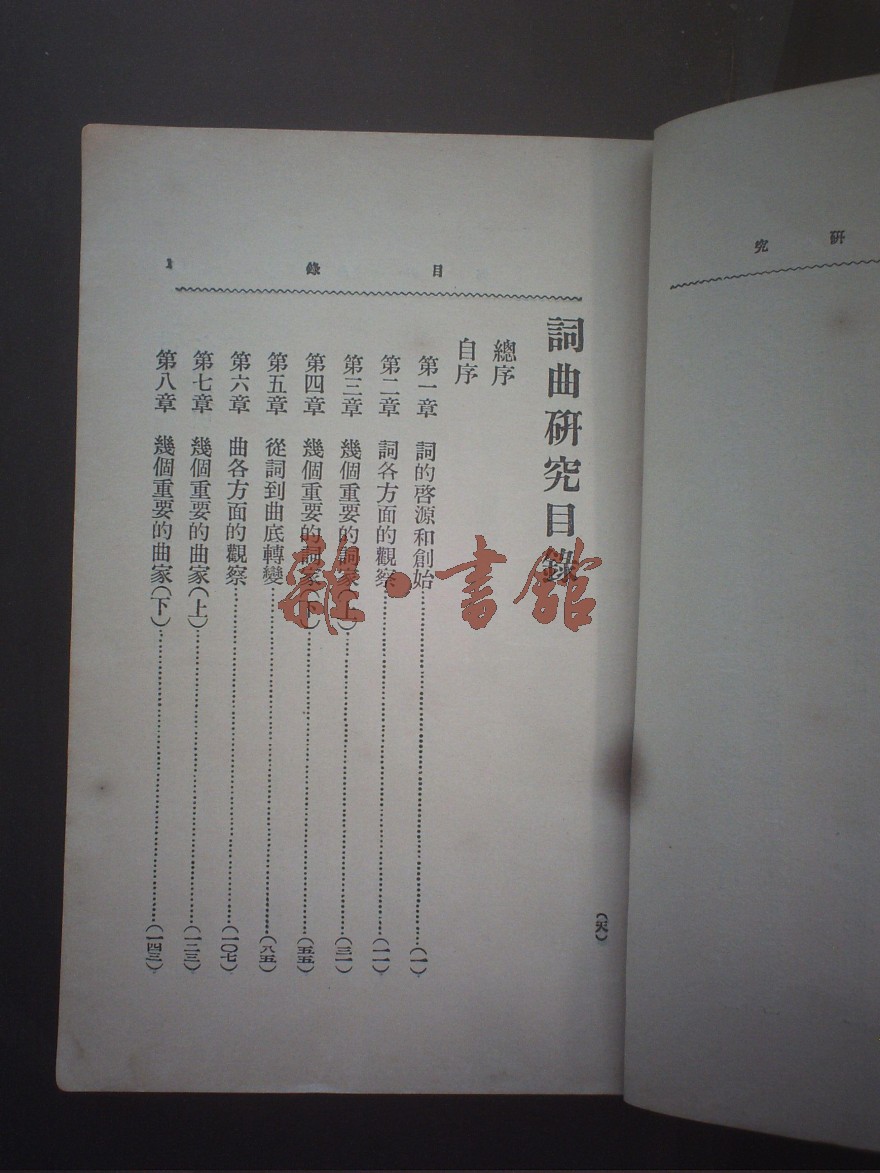 研究
目錄 1
詞曲研究目錄
總序
自序
第一章 詞的啓源和創始……(一)
第二章 詞各方面的觀察……(一一)
第三章 幾個重要的詞家(上)……(三一)
第四章 幾個重要的詞家(下)……(五五)
第五章 從詞到曲底轉變……(八五)
第六章 曲各方面的觀察……(一〇七)
第七章 幾個重要的曲家(上)……(一二三)
第八章 幾個重要的曲家(下)……(一四三)
雜·書館